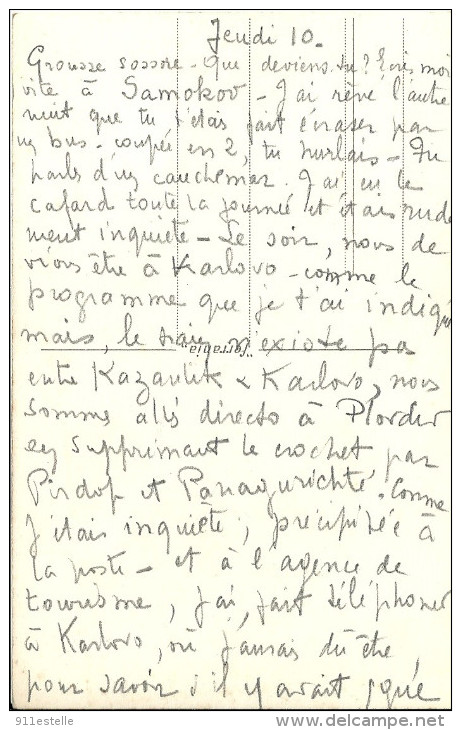 Jeudi 10.
Grousse sossore - Que deviens-tu? Ecris moi
vite à Samokov - J'ai rêvé l'autre
nuit que tu t'étais fait écraser par
un bus - coupée en 2, tu hurlais - Tu
parles d'un cauchemar. J'ai eu le
cafard toute la journée et étais rude
ment inquiète - Le soir, nous de
vions être à Karlovo - comme le
programme que je t'ai indiqué
mais, le train n'existe pas
"ferrania"
entre Kazanlik & Karlovo, nous
sommes allés directo à Plovdiv
en supprimant le crochet par
Pirdop et Panagurichté. Comme
j'étais inquiète, précipitée à
la poste - et à l'agence de
tourisme, j'ai fait téléphoner
à Karlovo, où j'aurais dû être,
pour savoir s'il y avait
911estelle
http://www.delcampe.net